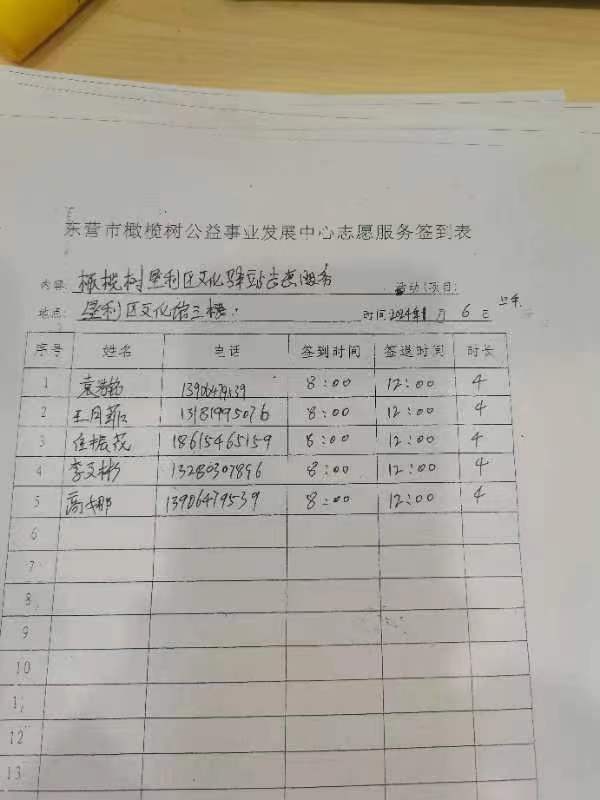 东营市橄榄树公益事业发展中心志愿服务签到表
内容: 橄榄树垦利区文化驿站志愿服务 活动(项目)
地点: 垦利区文化馆三楼. 时间 2024年1月6日 上午
序号 姓名 电话 签到时间 签退时间 时长
1 袁 13906479539 8:00 12:00 4
2 王月 13181995076 8:00 12:00 4
3 任振茂 18615465159 8:00 12:00 4
4 李文彬 13280307896 8:00 12:00 4
5 高娜 13906479539 8:00 12:00 4
6
7
8
9
10
11
12
13